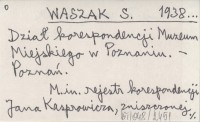 WASZAK S. 1938...
Dział korespondencji Muzeum
Miejskiego w Poznaniu. -
Poznań.
M.in. rejestr korespondencji
Jana Kasprowicza, zniszczonej